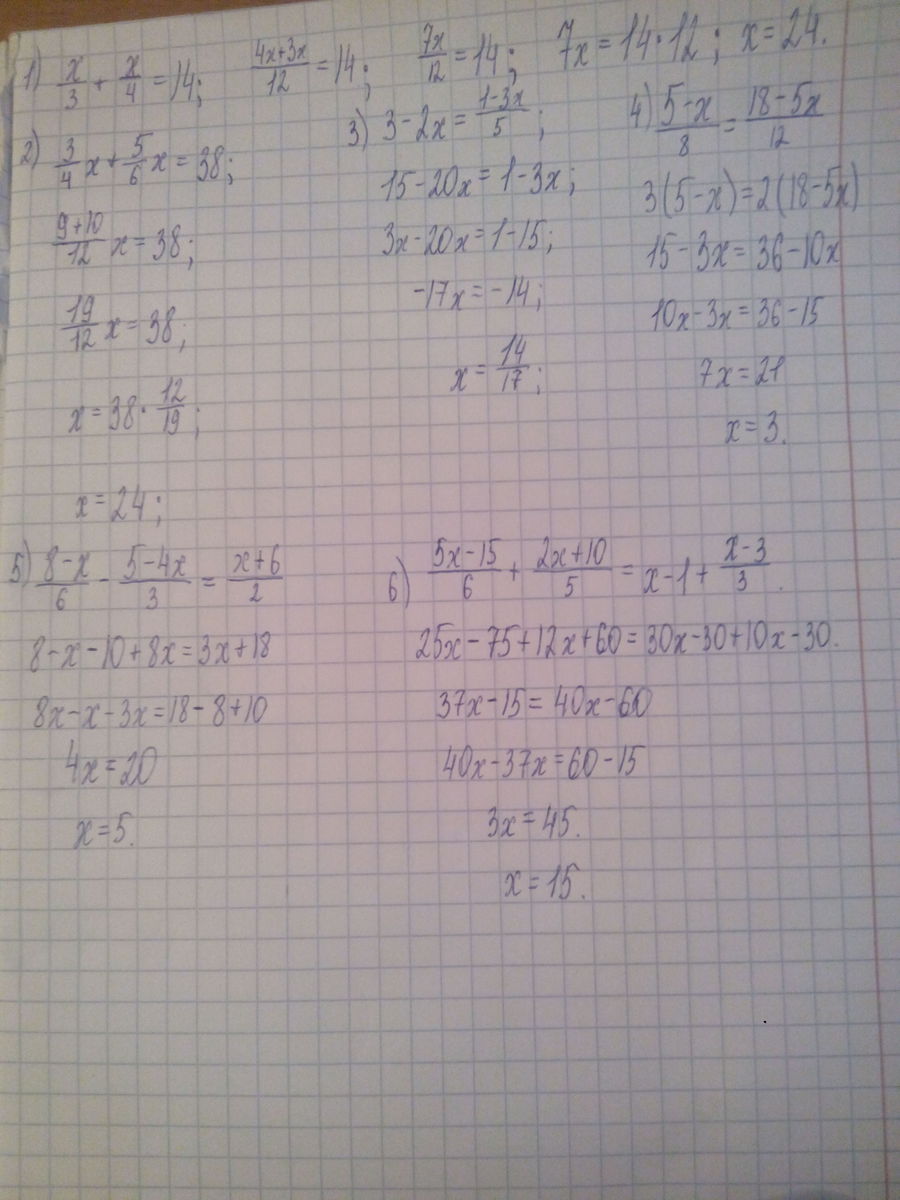 1) x/3 + x/4 = 14; (4x+3x)/12 = 14; 7x/12 = 14; 7x = 14·12; x = 24.
2) 3/4 x + 5/6 x = 38;
(9+10)/12 x = 38;
19/12 x = 38;
x = 38 · 12/19;
x = 24;
3) 3 - 2x = (1-3x)/5;
15 - 20x = 1 - 3x;
3x - 20x = 1 - 15;
-17x = -14;
x = 14/17;
4) (5-x)/8 = (18-5x)/12
3(5-x) = 2(18-5x)
15 - 3x = 36 - 10x
10x - 3x = 36 - 15
7x = 21
x = 3.
5) (8-x)/6 - (5-4x)/3 = (x+6)/2
8 - x - 10 + 8x = 3x + 18
8x - x - 3x = 18 - 8 + 10
4x = 20
x = 5.
6) (5x-15)/6 + (2x+10)/5 = x - 1 + (x-3)/3.
25x - 75 + 12x + 60 = 30x - 30 + 10x - 30.
37x - 15 = 40x - 60
40x - 37x = 60 - 15
3x = 45.
x = 15.